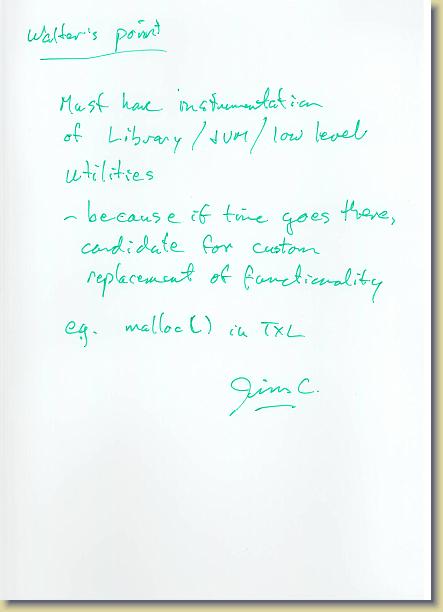 Walter's point
Must have instrumentation
of Library/JVM/low level
utilities
- because if time goes there,
candidate for custom
replacement of functionality
e.g. malloc() in TXL
Jim C.